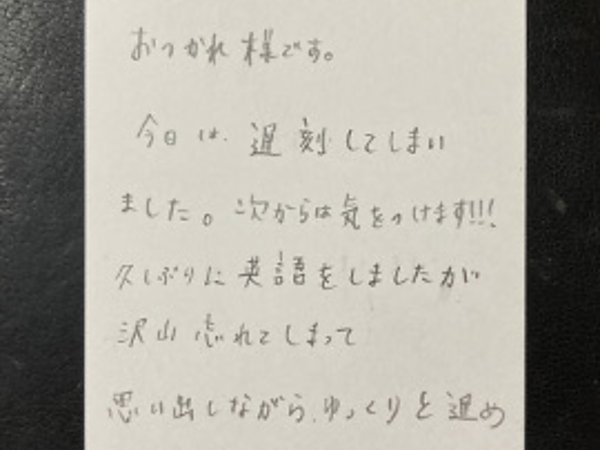 おつかれ様です。
今日は、遅刻してしまい
ました。次からは気をつけます!!!
久しぶりに英語をしましたが
沢山忘れてしまって
思い出しながら、ゆっくりと進め